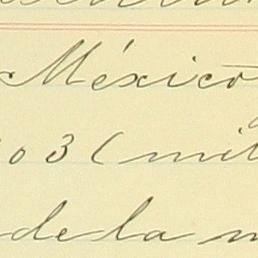 México
03 (mil
de la